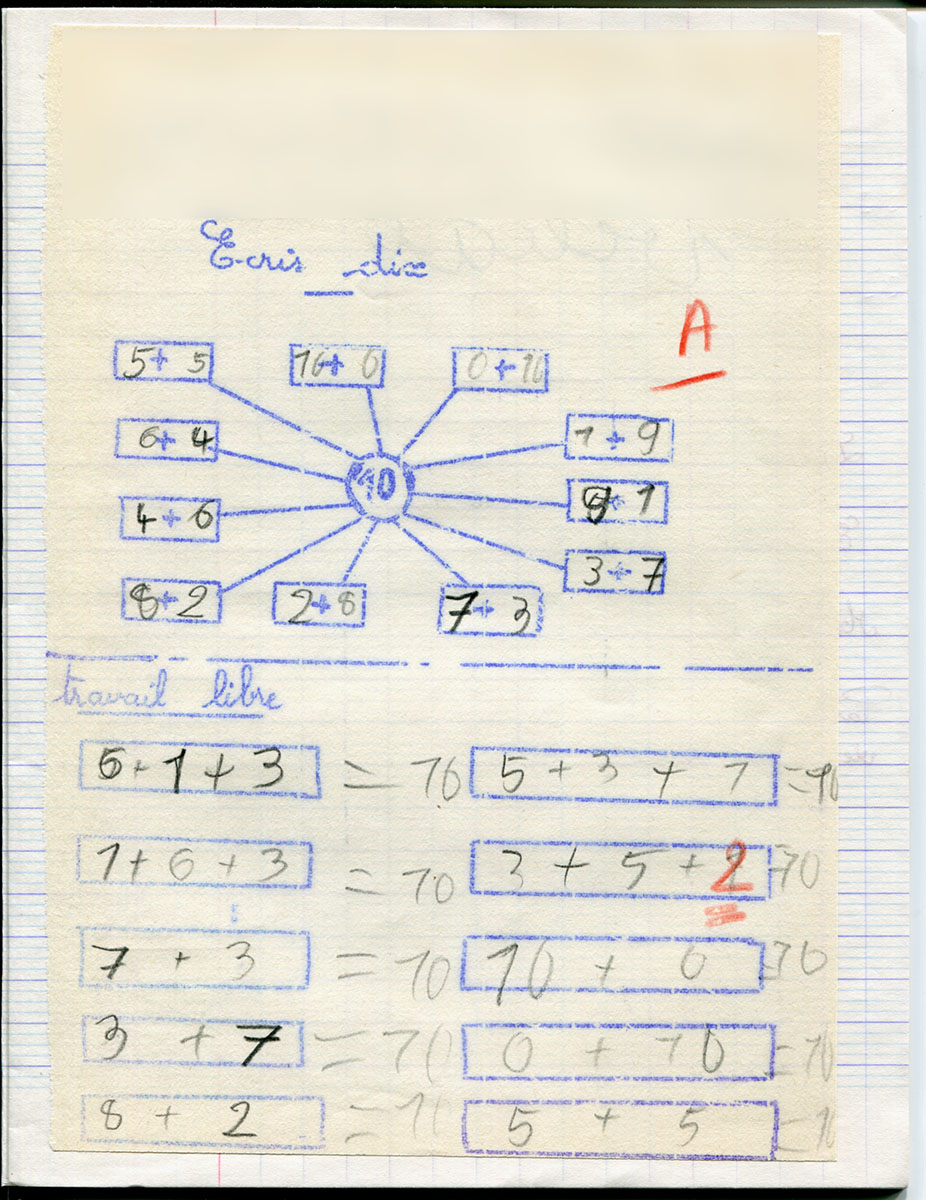 Ecris dix
A
5+5 10+0 0+10
6+4 1+9
10
4+6 9+1
3+7
8+2 2+8 7+3
travail libre
6+1+3 = 10 5+3+1 = 10
1+6+3 = 10 3+5+2 = 10
7+3 = 10 10+0 = 10
3+7 = 10 0+10 = 10
8+2 = 10 5+5 = 10